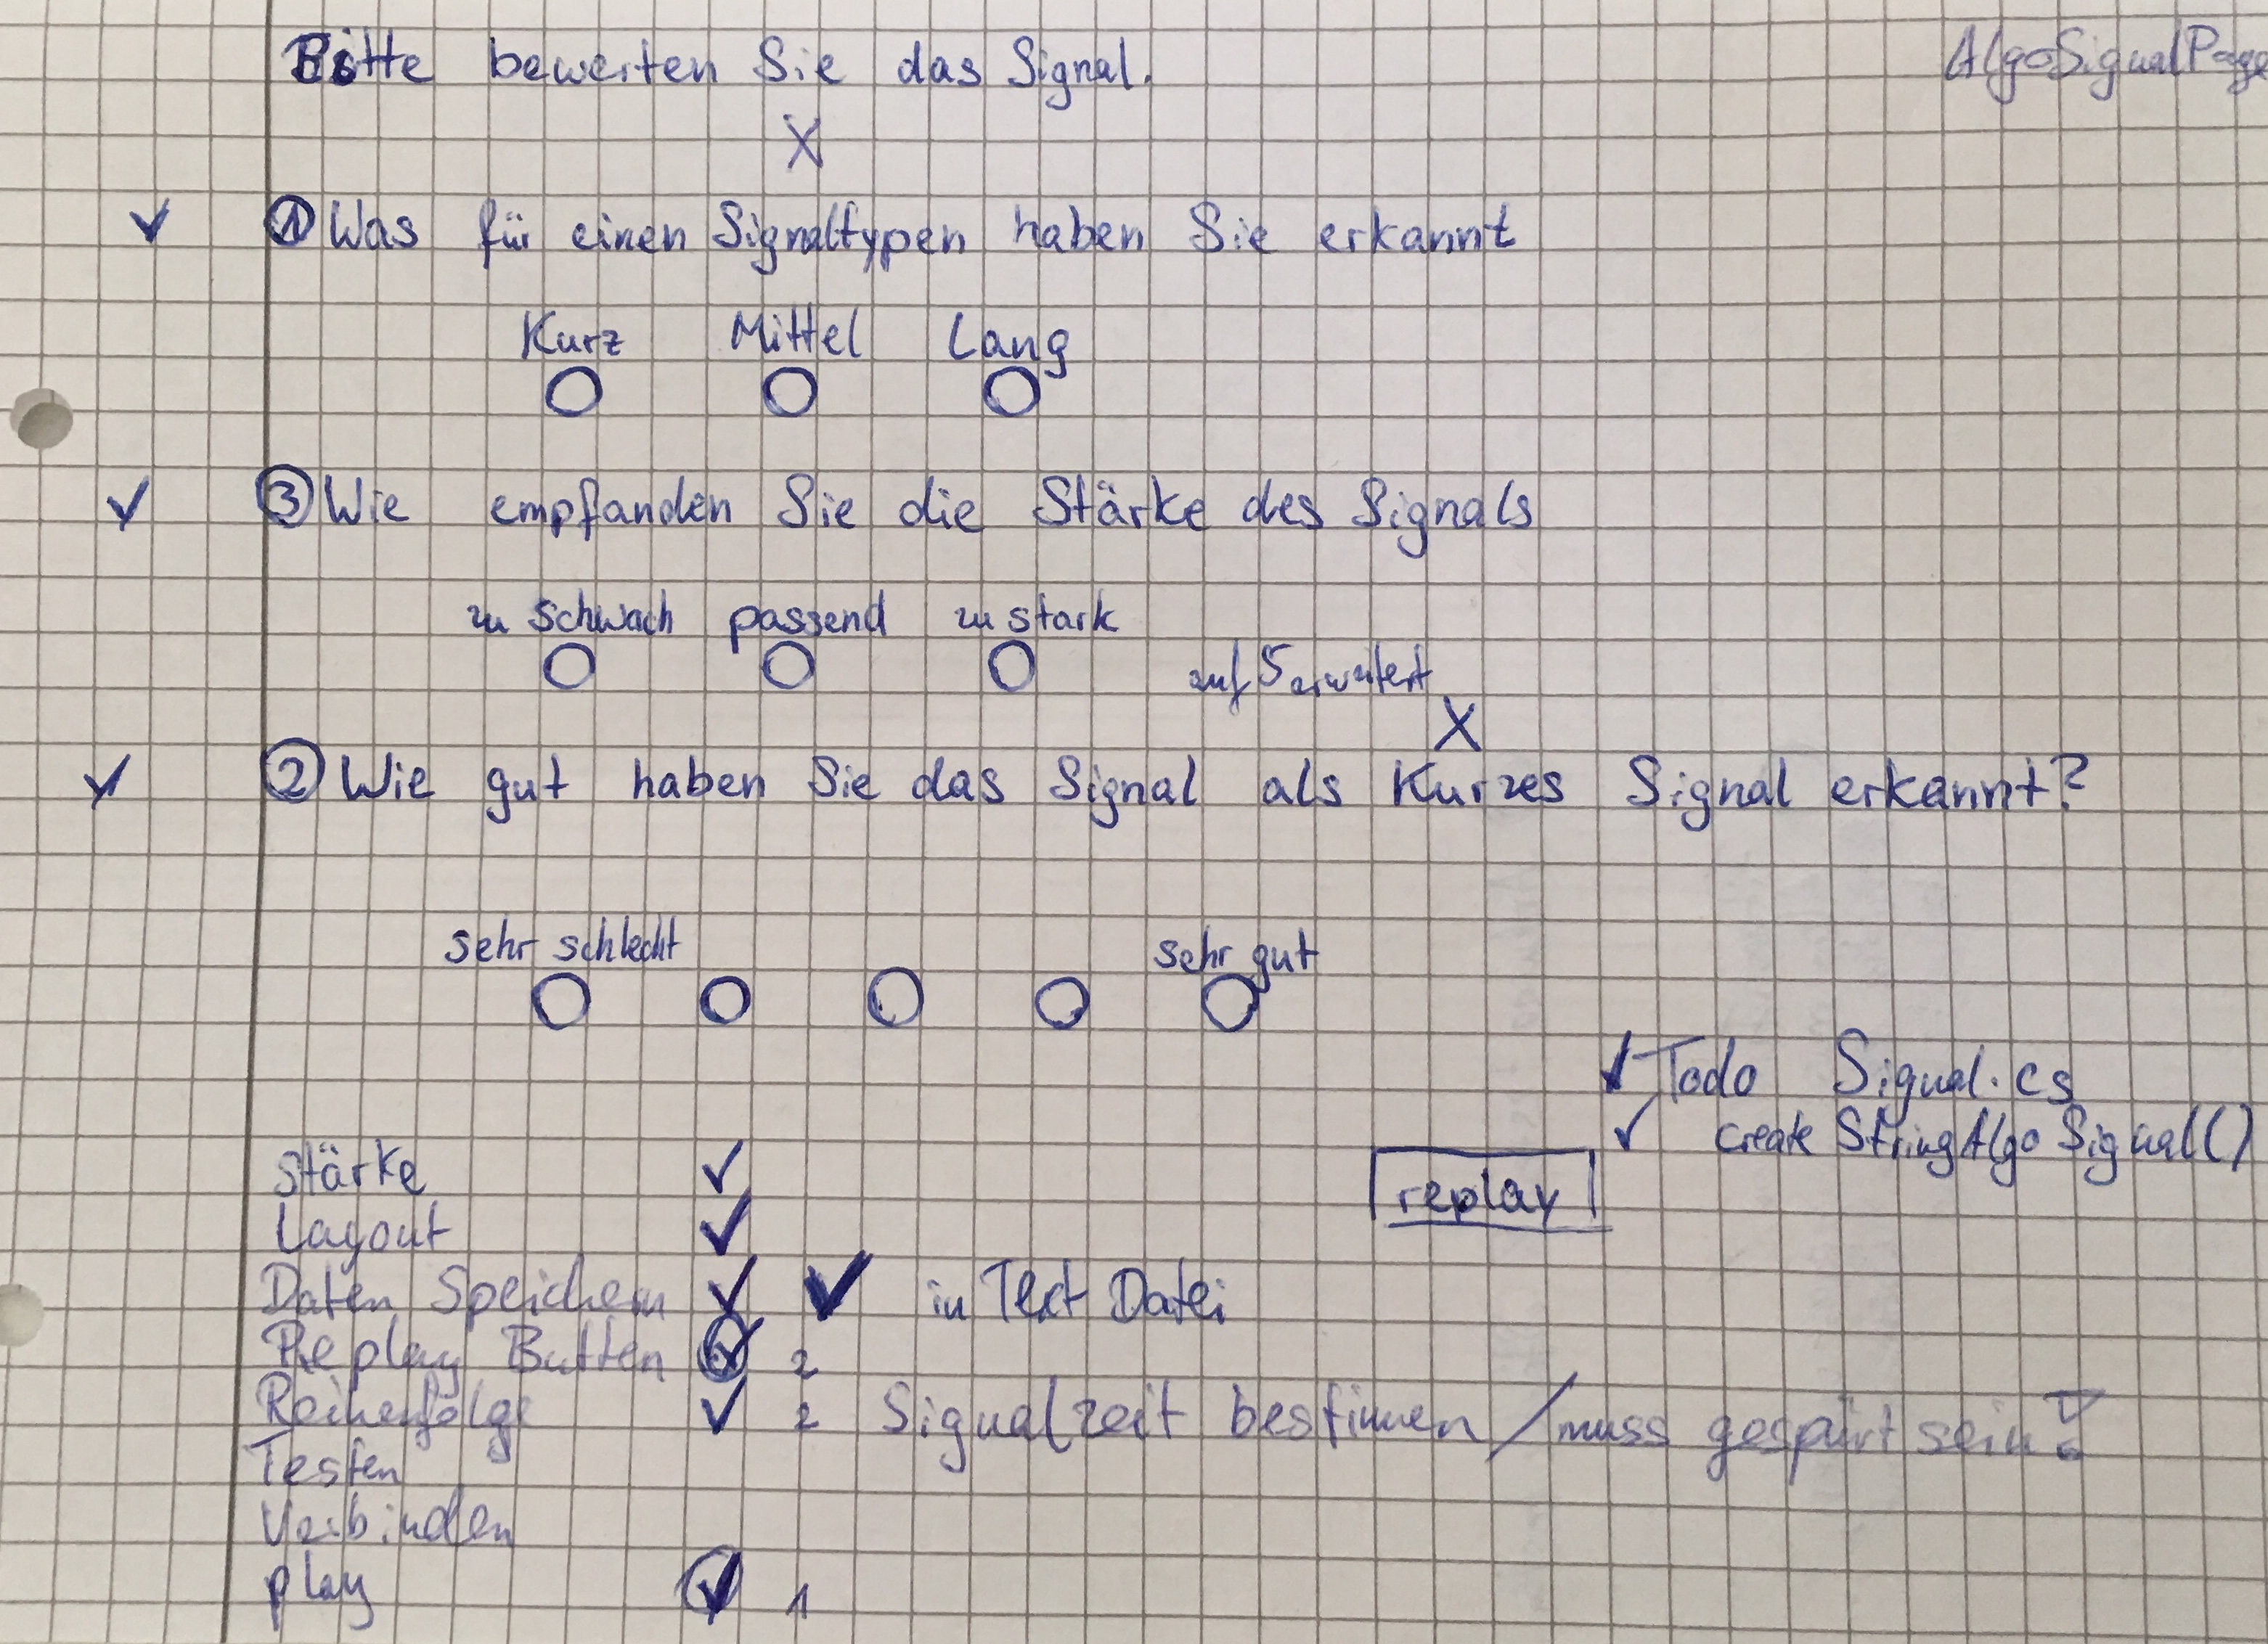 Bitte bewerten Sie das Signal.
AlgoSignalPage
X
✓ ① Was für einen Signaltypen haben Sie erkannt
Kurz Mittel Lang
✓ ③ Wie empfanden Sie die Stärke des Signals
zu schwach passend zu stark
auf 5 erweitert
X
✓ ② Wie gut haben Sie das Signal als Kurzes Signal erkannt?
sehr schlecht sehr gut
✓ Todo Signal.cs
✓ create StringAlgoSignal()
replay
Stärke ✓
Layout ✓
Daten Speichern ✓ ✓ in Text Datei
Replay Button ✓ 2
Reihenfolge ✓ 2 Signalzeit bestimmen / muss gespürt sein!
Testen
Verbinden
play ✓ 1